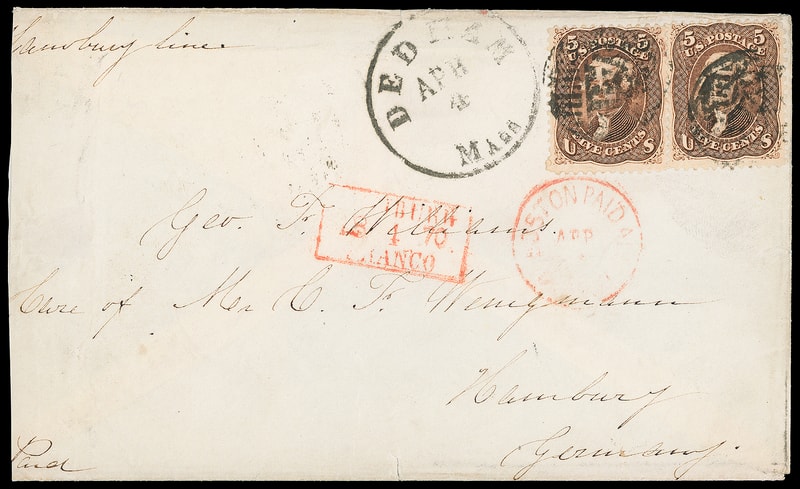 Hamburg line
DEDHAM
APR
4
MASS
5 5
U.S. POSTAGE
FIVE CENTS
U S
5 5
U.S. POSTAGE
FIVE CENTS
U S
BOSTON PAID
APR
FRANCO
Geo. F. Williams.
Care of Mr C. F. Wengmann
Hamburg
Germany.
Paid